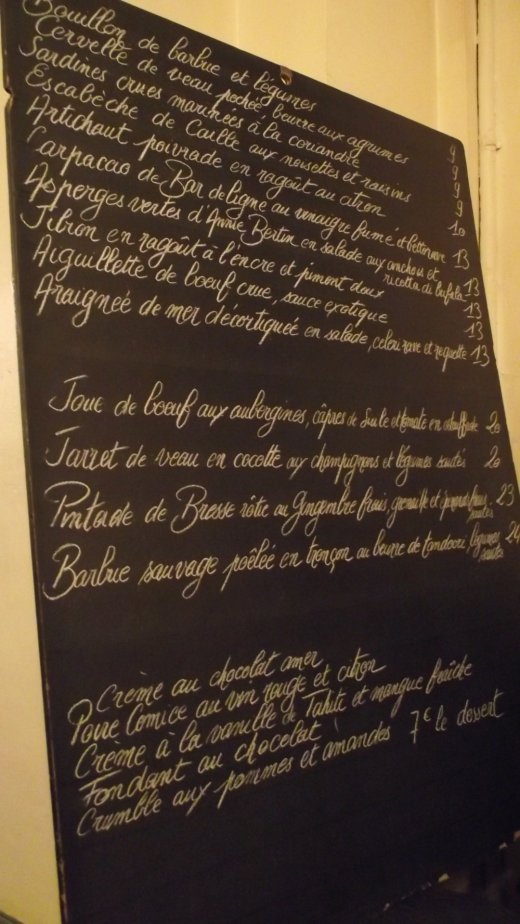 Bouillon de barbue et légumes 9
Cervelle de veau pochée beurre aux agrumes 9
Sardines crues marinées à la coriandre 9
Escabèche de Caille aux noisettes et raisins 9
Artichaut poivrade en ragoût au citron 10
Carpaccio de Bar de ligne au vinaigre fumé et betterave 13
Asperges vertes d'Annie Bertin en salade aux anchois et
ricotta di bufala 13
en ragoût à l'encre et piment doux 13
Aiguillette de boeuf crue, sauce exotique 13
Araignée de mer décortiquée en salade, celeri rave et roquette 13
Joue de boeuf aux aubergines, câpres de et tomate en 20
Jarret de veau en cocotte aux champignons et légumes sautés 20
Pintade de Bresse rôtie au Gingembre frais, grenaille et 23
sautés
Barbue sauvage poêlée en tronçon au beurre de tandoori, légumes 24
sautés
Crème au chocolat amer
Poire Comice au vin rouge et citron
Crème à la vanille de Tahiti et mangue fraîche
Fondant au chocolat
Crumble aux pommes et amandes 7€ le dessert